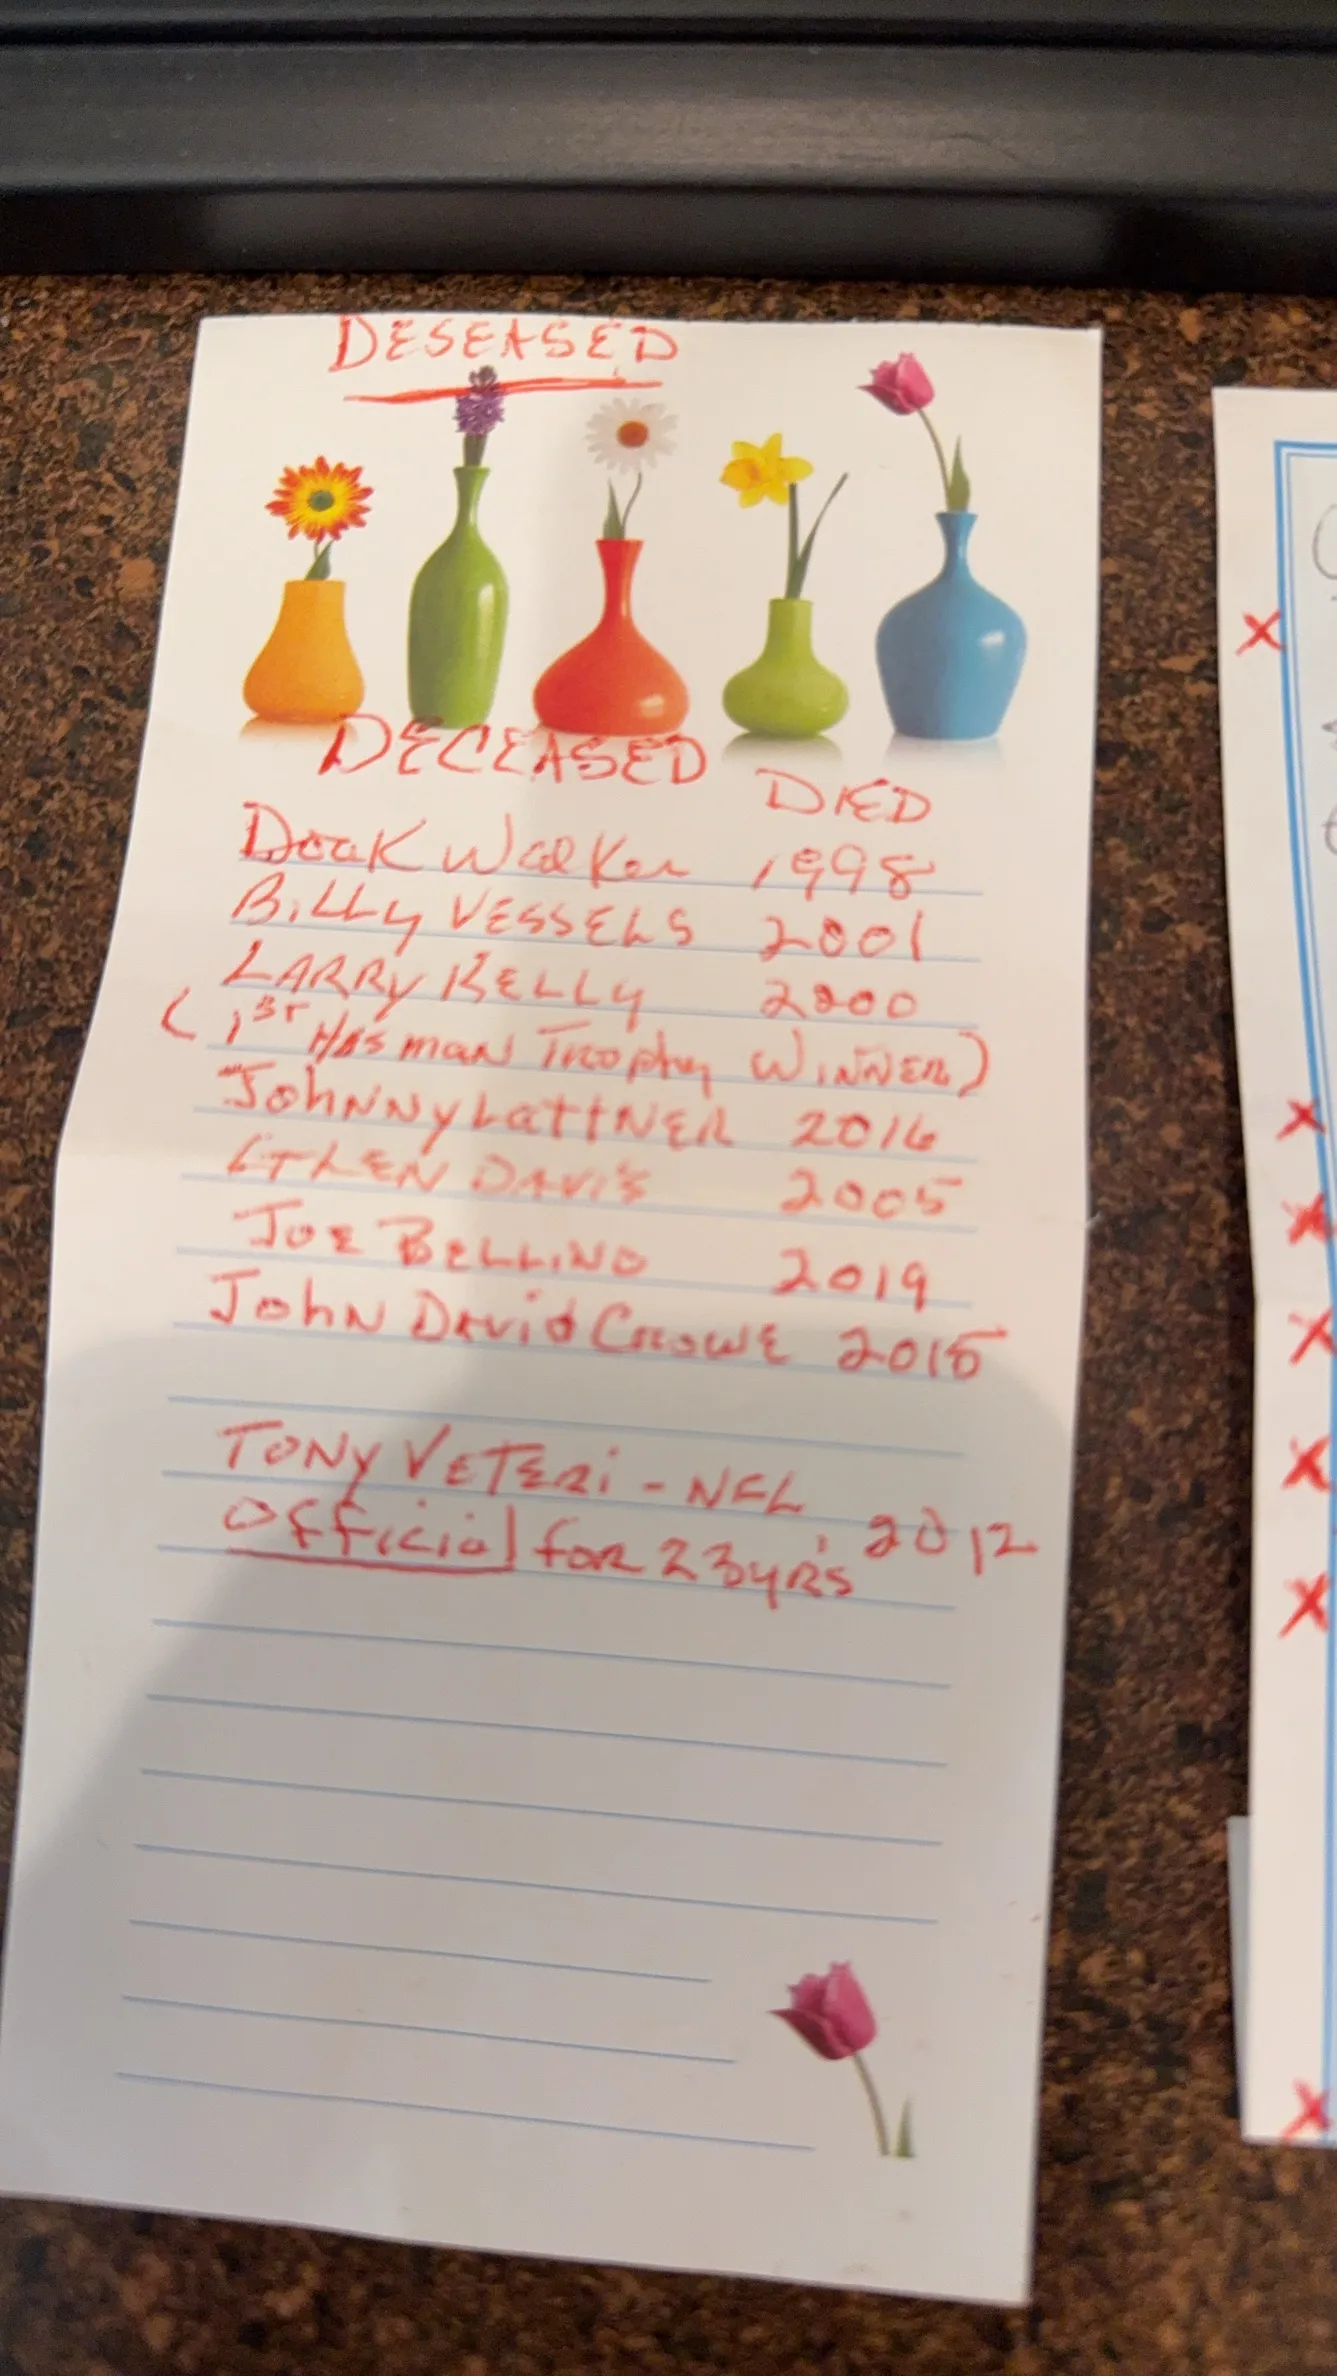 DESEASED
DECEASED DIED
Doak Walker 1998
BILLY VESSELS 2001
LARRY KELLY 2000
(1ST Hasman Trophy WINNER)
JOHNNY LATTNER 2016
GLEN DAVIS 2005
JOE BELLINO 2019
JOHN DAVID CROWE 2015
TONY VETERI - NFL
Official for 23yr's 2012
X
X
X
X
X
X
X